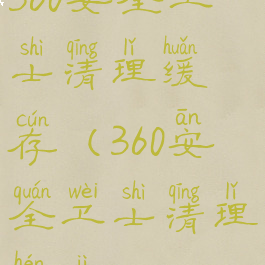 360安全卫
shì qīng lǐ huǎn
士清理缓
cún ān
存(360安
quán wèi shì qīng lǐ
全卫士清理